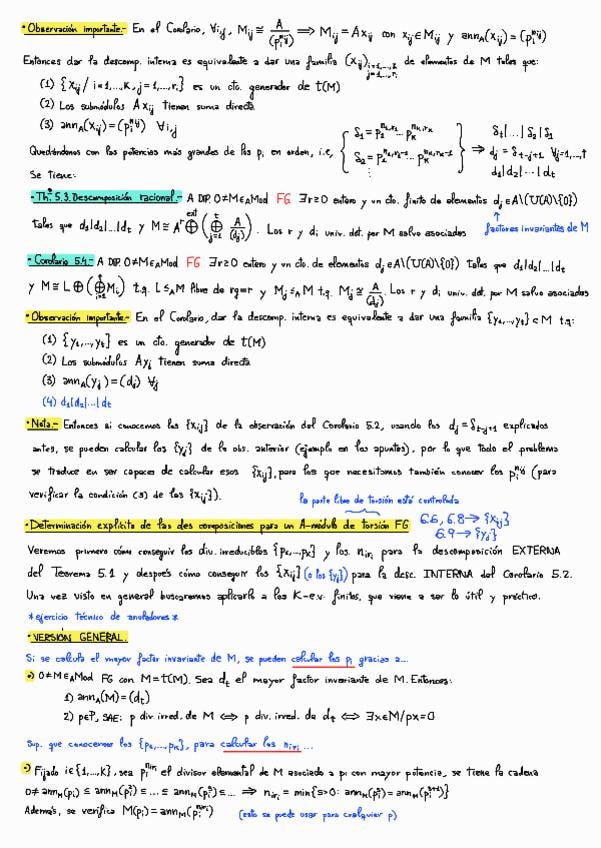 ·Observación importante.- En el Corolario, ∀i,j, M_ij ≅ A/(p_i^{n_ij}) ⟹ M_ij = A x_ij con x_ij ∈ M_ij y ann_A(x_ij) = (p_i^{n_ij})
Entonces dar la descomp. interna es equivalente a dar una familia (x_ij)_{i=1,...,k, j=1,...,r_i} de elementos de M tales que:
(1) {x_ij / i=1,...,k, j=1,...,r_i} es un cto. generador de t(M)
(2) Los submódulos A x_ij tienen suma directa
(3) ann_A(x_ij) = (p_i^{n_ij}) ∀i,j
Quedándonos con las potencias más grandes de los p_i en orden, i.e, { δ_1 = p_1^{n_1,r_1} ... p_k^{n_k,r_k} δ_2 = p_1^{n_1,r_1-1} ... p_k^{n_k,r_k-1} ⋮ } ⟹ δ_t | ... | δ_2 | δ_1 d_j = δ_{t-j+1} ∀j=1,...,t d_1|d_2|...|d_t
Se tiene:
·Th. 5.3. Descomposición racional.- A DIP. 0≠M∈_A Mod FG ∃r≥0 entero y un cto. finito de elementos d_j ∈ A\(U(A)∪{0})
tales que d_1|d_2|...|d_t y M ≅ A^r ⊕^{ext} (⊕_{j=1}^t A/(d_j)). Los r y d_i univ. det. por M salvo asociados
factores invariantes de M
·Corolario 5.4.- A DIP. 0≠M∈_A Mod FG ∃r≥0 entero y un cto. de elementos d_j ∈ A\(U(A)∪{0}) tales que d_1|d_2|...|d_t
y M ≅ L ⊕ (⊕ M_i) t.q. L ≤_A M libre de rg=r y M_j ≤_A M t.q. M_j ≅ A/(d_j). Los r y d_i univ. det. por M salvo asociados
·Observación importante.- En el Corolario, dar la descomp. interna es equivalente a dar una familia {y_1,...,y_t} ⊂ M t.q:
(1) {y_1,...,y_t} es un cto. generador de t(M)
(2) Los submódulos A y_j tienen suma directa
(3) ann_A(y_j) = (d_j) ∀j
(4) d_1|d_2|...|d_t
·Nota.- Entonces si conocemos los {x_ij} de la observación del Corolario 5.2, usando los d_j = δ_{t-j+1} explicados
antes, se pueden calcular los {y_j} de la obs. anterior (ejemplo en los apuntes), por lo que todo el problema
se traduce en ser capaces de calcular esos {x_ij}, para los que necesitamos también conocer los p_i^{n_ij} (para
verificar la condición (3) de los {x_ij}).
la parte libre de torsión está controlada
·Determinación explícita de las descomposiciones para un A-módulo de torsión FG
6.6, 6.8 → {x_ij}
6.9 → {y_j}
Veremos primero cómo conseguir los div. irreducibles {p_1,...,p_k} y los n_{i r_i} para la descomposición EXTERNA
del Teorema 5.1 y después cómo conseguir los {x_ij} (o los {y_j}) para la desc. INTERNA del Corolario 5.2.
Una vez visto en general buscaremos aplicarlo a los K-e.v. finitos, que viene a ser lo útil y práctico.
*ejercicio técnico de anuladores*
·VERSIÓN GENERAL.
Si se calcula el mayor factor invariante de M, se pueden calcular los p_i gracias a...
·) 0≠M∈_A Mod FG con M=t(M). Sea d_t el mayor factor invariante de M. Entonces:
1) ann_A(M) = (d_t)
2) p∈P, SAE: p div. irred. de M ⟺ p div. irred. de d_t ⟺ ∃x∈M/px=0
Sup. que conocemos los {p_1,...,p_k}, para calcular los n_{i r_i} ...
·) Fijado i∈{1,...,k}, sea p_i^{n_{i r_i}} el divisor elemental de M asociado a p_i con mayor potencia, se tiene la cadena
0≠ ann_M(p_i) ≤ ann_M(p_i^2) ≤ ... ≤ ann_M(p_i^s) ≤ ... ⟹ n_{i r_i} = min{s>0: ann_M(p_i^s) = ann_M(p_i^{s+1})}
Además, se verifica M(p_i) = ann_M(p_i^{n_{i r_i}}) (esto se puede usar para cualquier p)